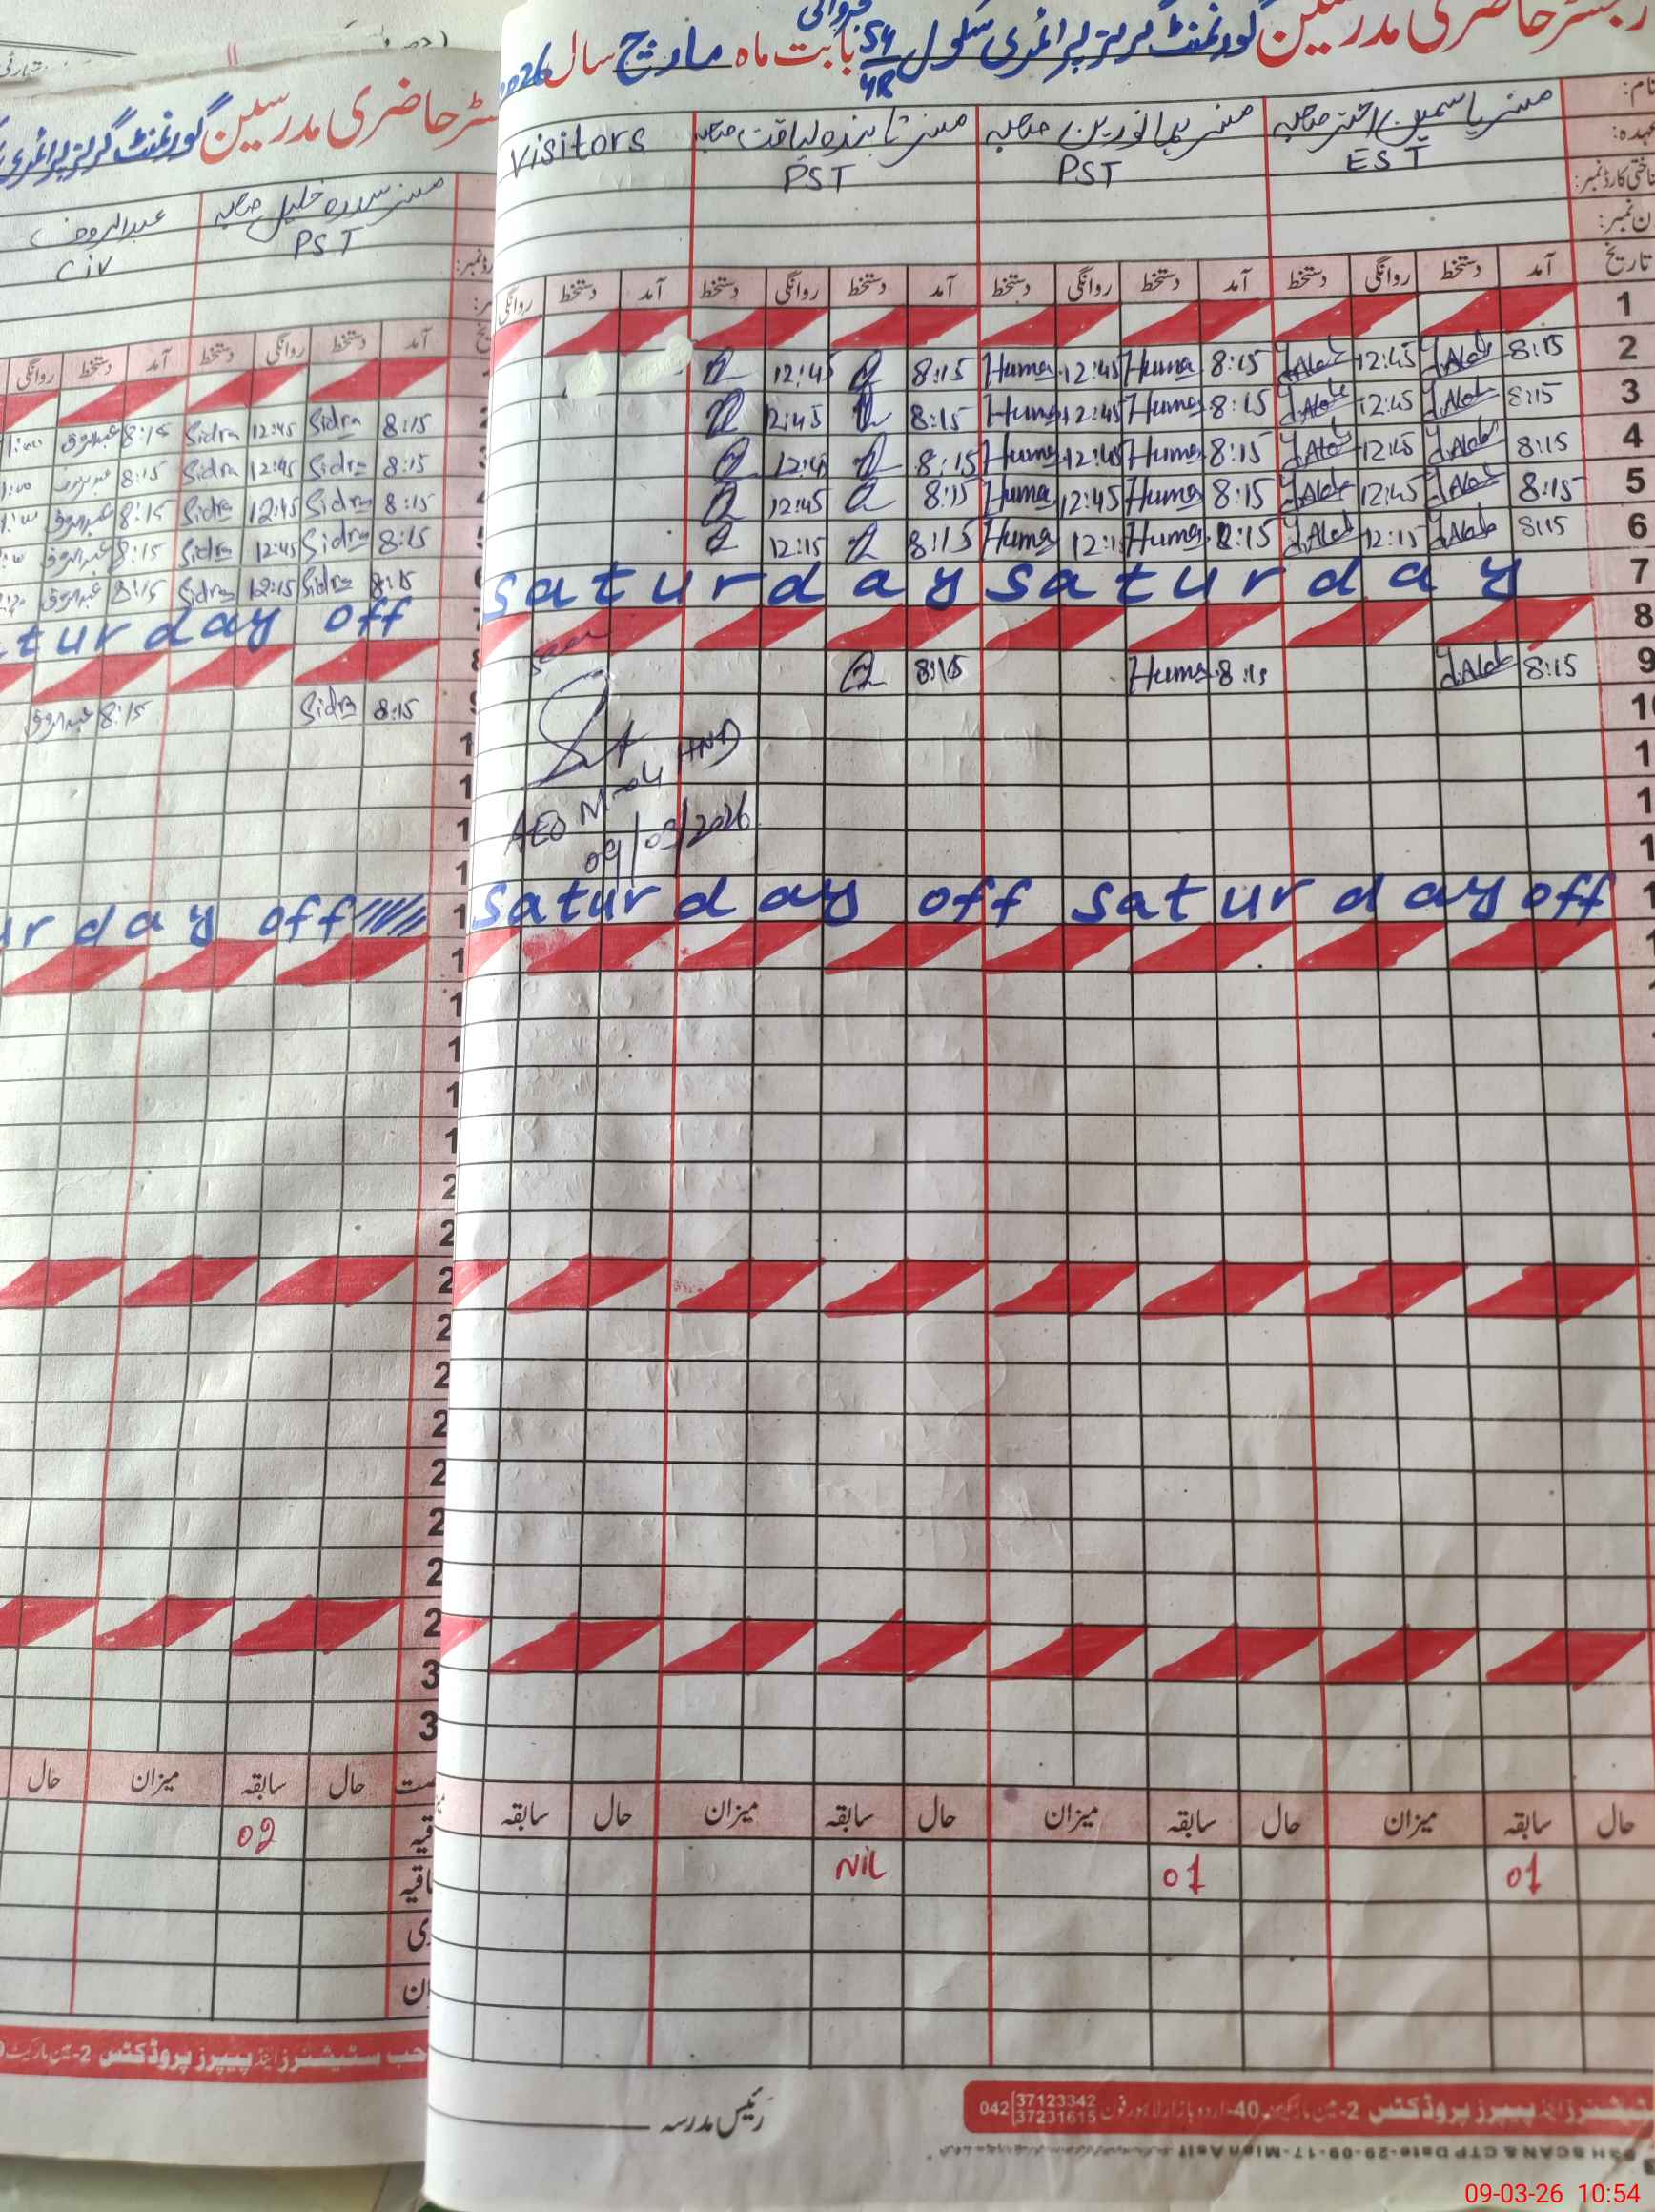 رجسٹر حاضری مدرسین گورنمنٹ گرلز پرائمری سکول 54/4R بابت ماہ مارچ سال 2026
نام: مسز یاسمین اختر صاحبہ مسز ہما نورین صاحبہ مسز تابندہ لیاقت صاحبہ Visitors
عہدہ: EST PST PST
شناختی کارڈ نمبر:
فون نمبر:
تاریخ آمد دستخط روانگی دستخط آمد دستخط روانگی دستخط آمد دستخط روانگی دستخط آمد دستخط روانگی
1
2 8:15 12:45 8:15 Huma 12:45 Huma 8:15 12:45
3 8:15 12:45 8:15 Huma 12:45 Huma 8:15 12:45
4 8:15 12:45 8:15 Huma 12:45 Huma 8:15 12:45
5 8:15 12:45 8:15 Huma 12:45 Huma 8:15 12:45
6 8:15 12:15 8:15 Huma 12:15 Huma 8:15 12:15
7 Saturday Saturday
8 Seen
9 8:15 8:15 Huma 8:15
AEO M-04 HND
09/03/2026
Saturday off Saturday off
حال سابقہ میزان حال سابقہ میزان حال سابقہ میزان حال سابقہ
01 01 Nil
رئیس مدرسہ
سٹیشنرز اینڈ پیپرز پروڈکٹس 2-مین مارکیٹ 40-اردو بازار لاہور فون 042 37123342 37231615
رجسٹر حاضری مدرسین گورنمنٹ گرلز پرائمری
مسز سدرہ خلیل صاحبہ عبدالروف
PST Civ
آمد دستخط روانگی دستخط آمد دستخط روانگی
8:15 Sidra 12:45 Sidra 8:15 عبدالروف
8:15 Sidra 12:45 Sidra 8:15 عبدالروف
8:15 Sidra 12:45 Sidra 8:15 عبدالروف
8:15 Sidra 12:45 Sidra 8:15 عبدالروف
8:15 Sidra 12:15 Sidra 8:15 عبدالروف
turday off
8:15 Sidra 8:15 عبدالروف
urday off
حال سابقہ میزان حال
02
سٹیشنرز اینڈ پیپرز پروڈکٹس 2-مین مارکیٹ
09-03-26 10:54